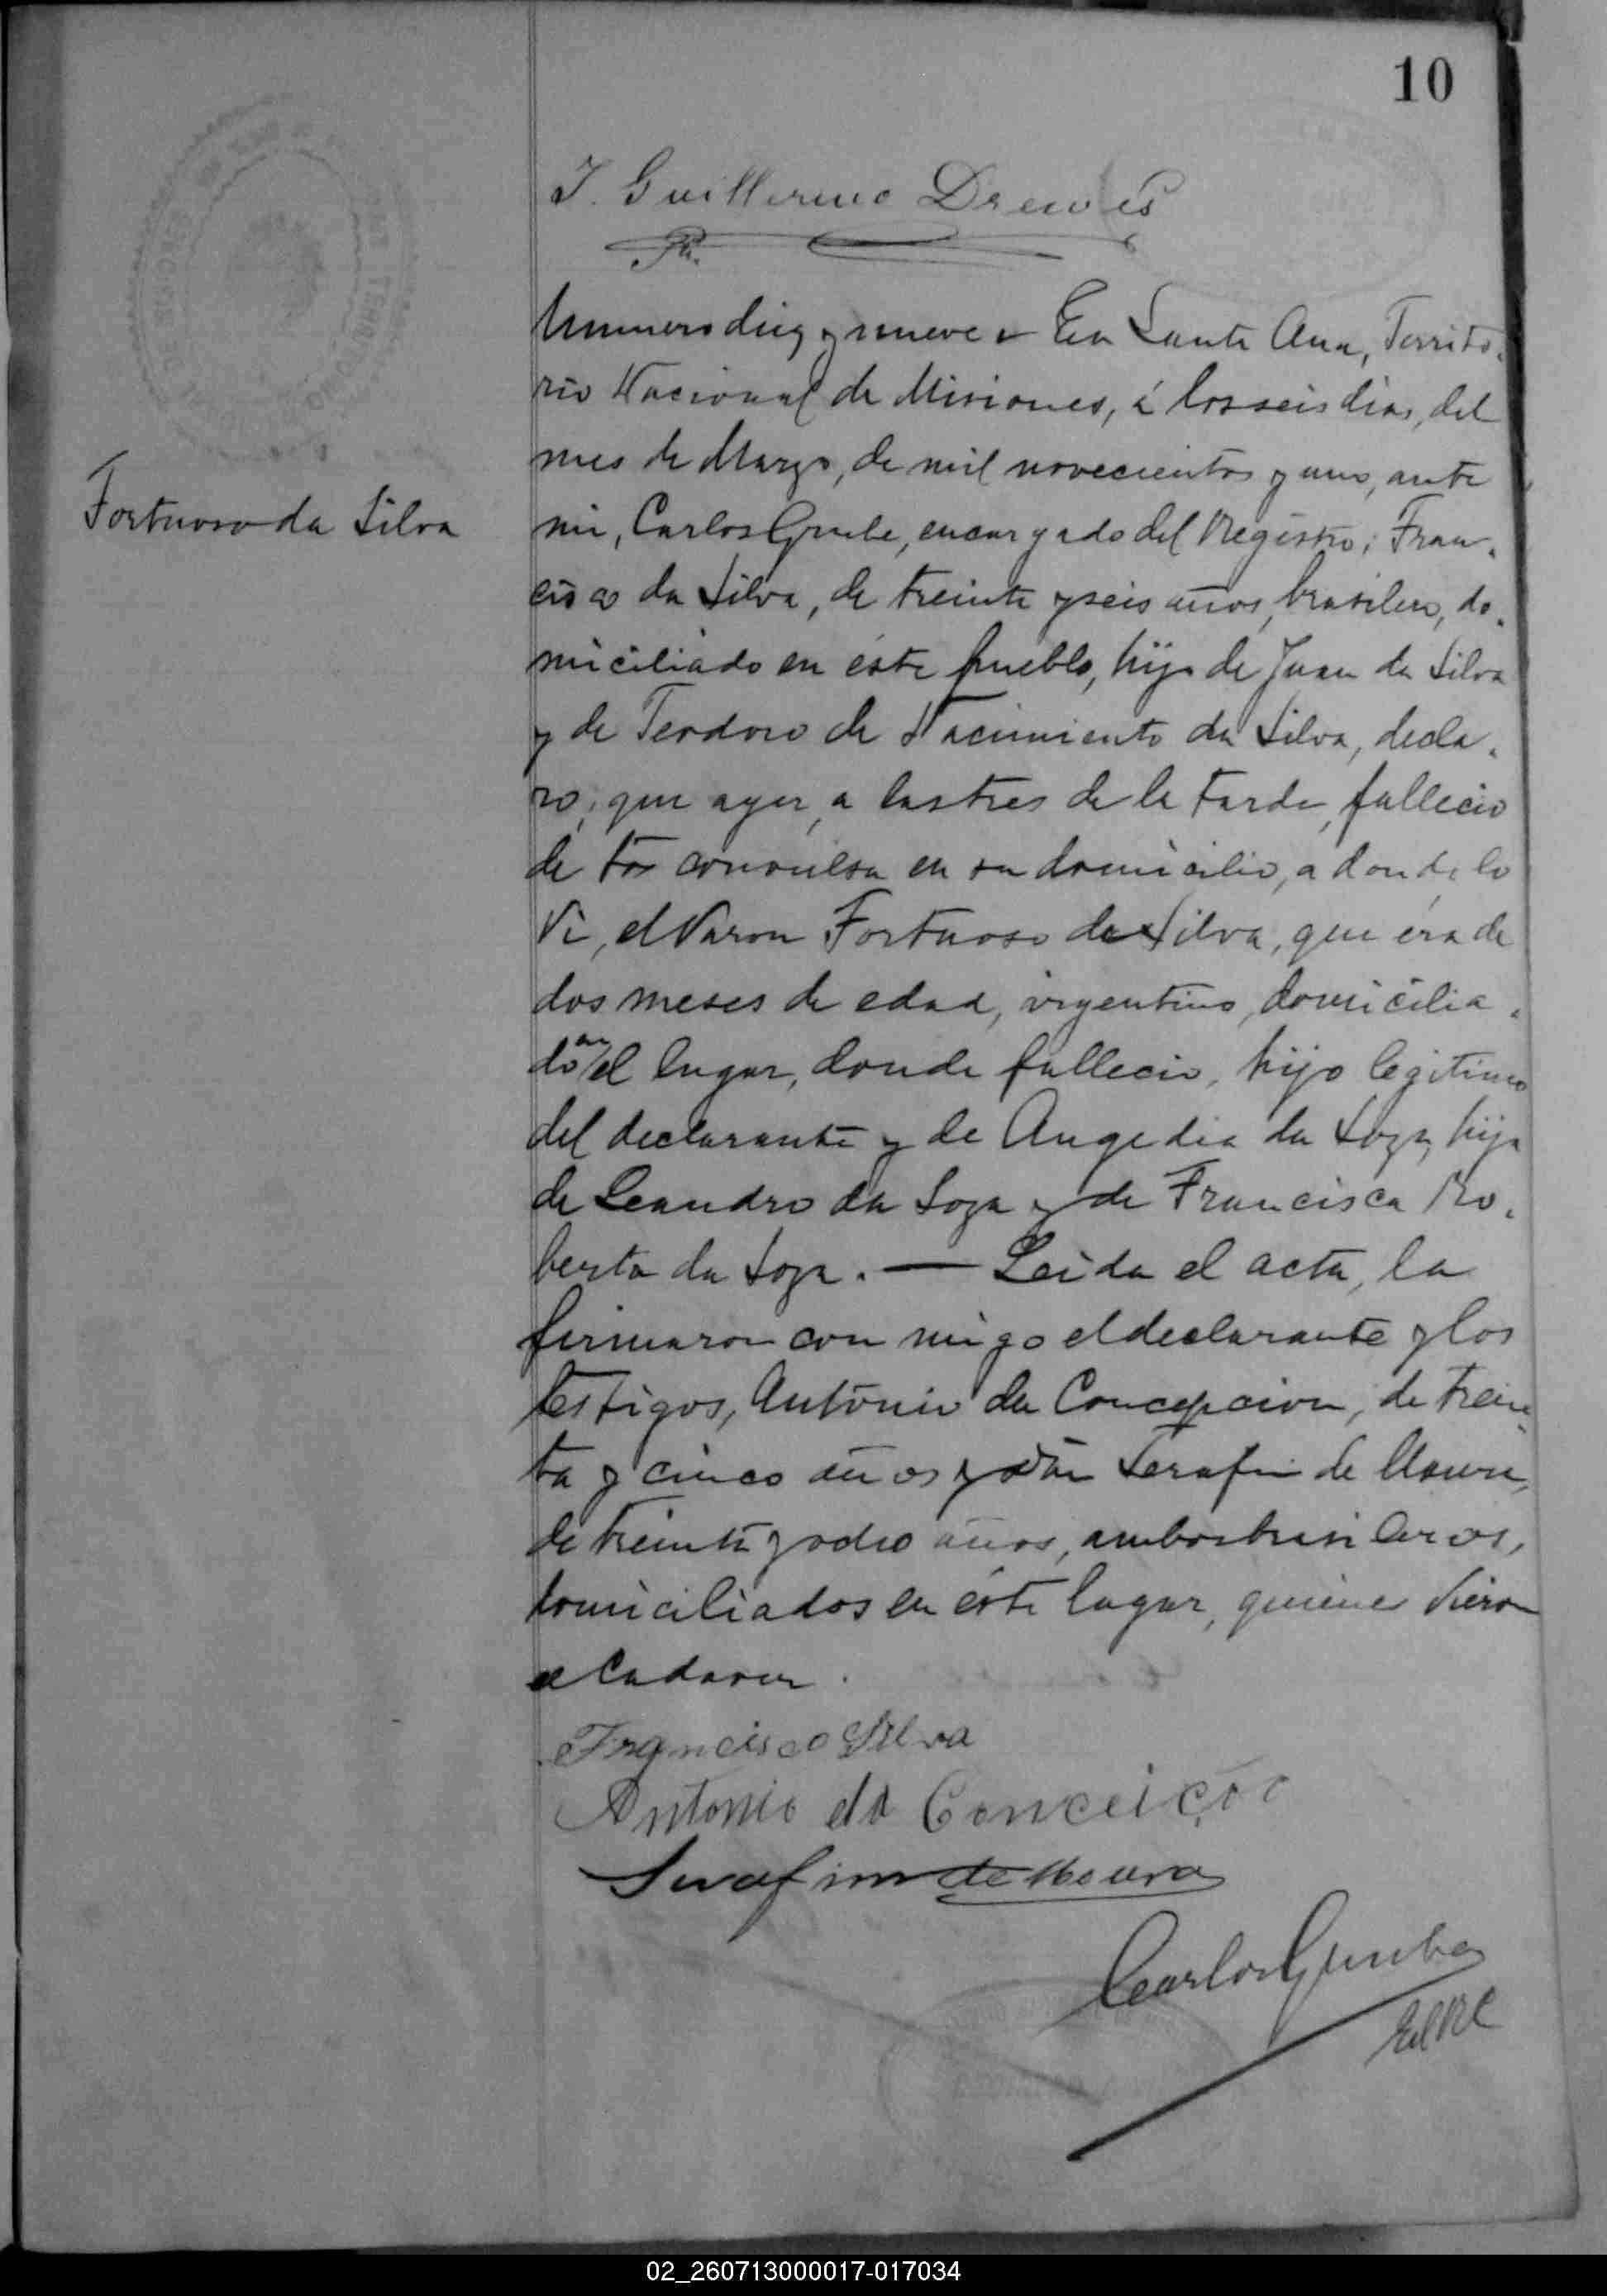 10
J. Guillermo Drewes
Fortuoso da Silva
Numero diez y nueve En Santa Ana, Territo-
rio Nacional de Misiones, á los seis dias, del
mes de Marzo, de mil novecientos y uno, ante
mi, Carlos Grube, encargado del Registro; Fran-
cisco da Silva, de treinta y seis años, brasilero, do-
miciliado en éste pueblo, hijo de Juan da Silva
y de Teodoro de Nacimiento da Silva, decla-
ro, que ayer, a las tres de la tarde, fallecio
de tos convulsa en su domicilio, a donde lo
Vi, el Varon Fortuoso da Silva, que era de
dos meses de edad, argentino, domicilia-
do en el lugar, donde fallecio, hijo legitimo
del declarante y de Angedia da Soza, hija
de Leandro da Soza y de Francisca Ro-
berta da Soza. — Leida el acta, la
firmaron con migo el declarante y los
testigos, Antonio da Concepcion, de trein-
ta y cinco años y Serafin de Moura,
de treinta y ocho años, ambos brasileros,
domiciliados en éste lugar, quienes vieron
el Cadaver.
Francisco Silva
Antonio da Conceição
Serafim de Moura
Carlos Grube
02_260713000017-017034